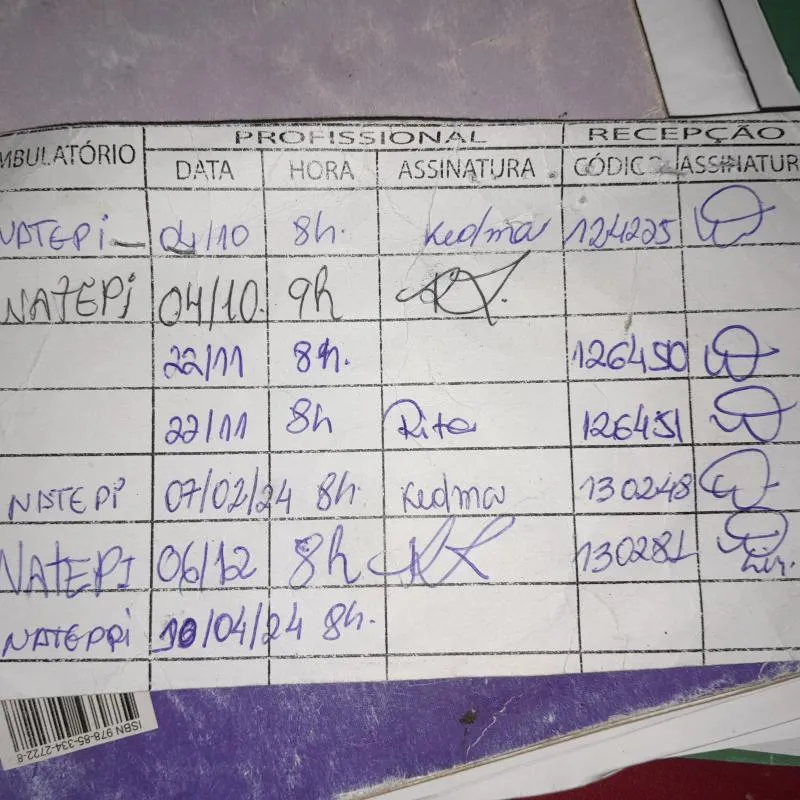 PROFISSIONAL RECEPÇÃO
MBULATÓRIO DATA HORA ASSINATURA CÓDIG ASSINATUR
NATEPI 04/10 8h. Kedma 124225
NATEPI 04/10. 9h
22/11 8h. 126450
22/11 8h Rita 126451
NISTEPI 07/02/24 8h. Kedma 130248
NATEPI 06/12 8h 130281
NATEPPI 10/04/24 8h.
ISBN 978-85-334-2722-8